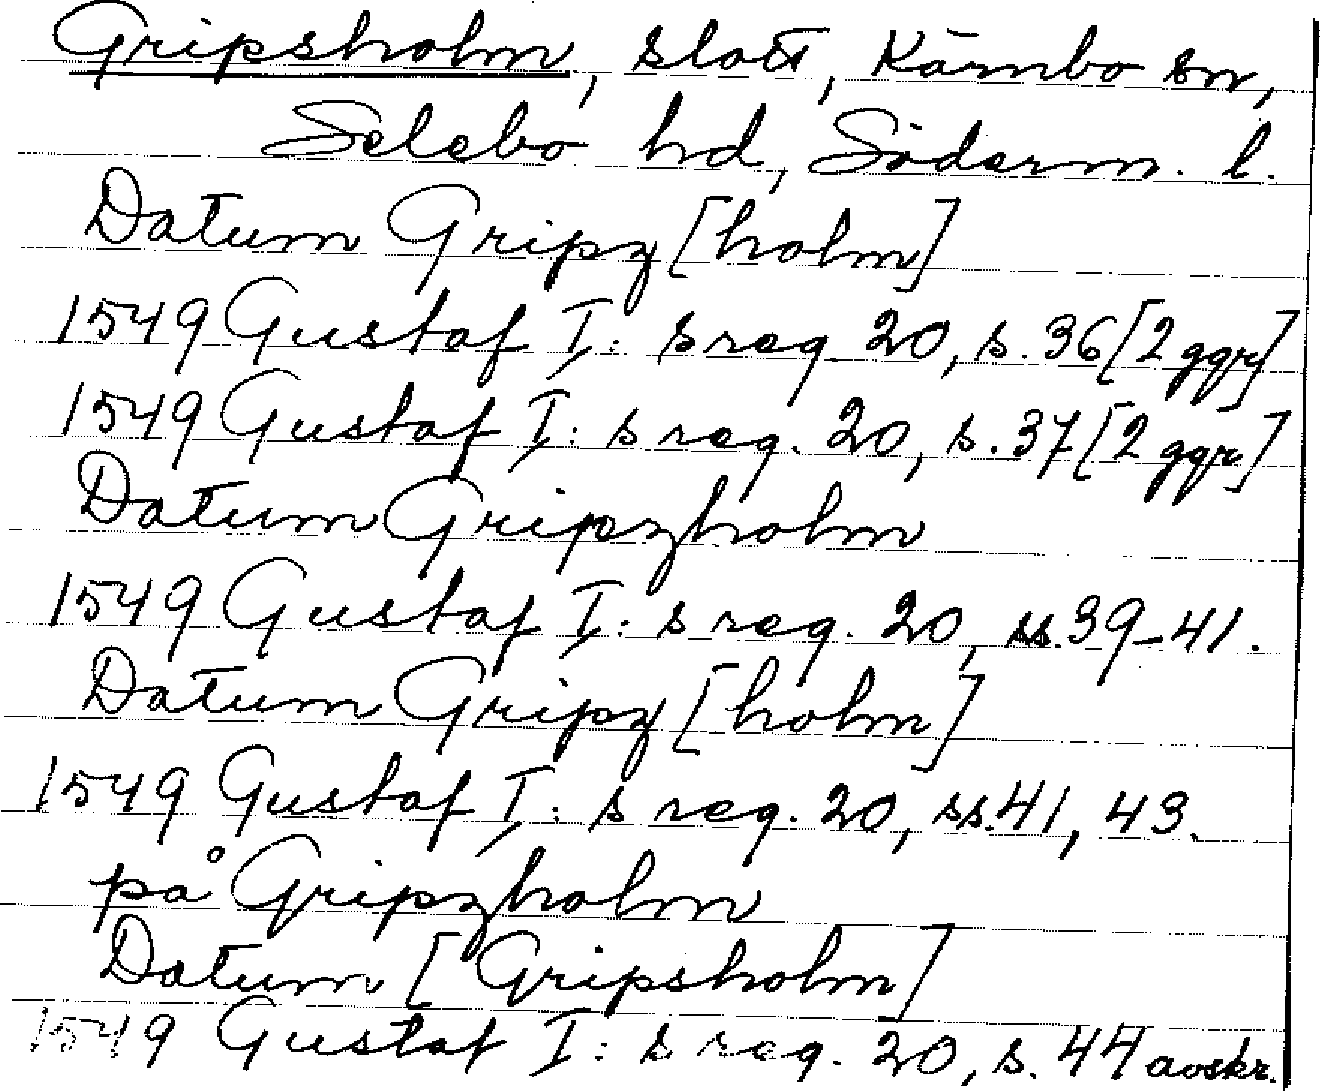 Gripsholm, slott, Kärnbo sn,
Selebo hd, Söderm. l.
Datum Gripz[holm]
1549 Gustaf I: s reg 20, s. 36 [2 ggr]
1549 Gustaf I: s reg. 20, s. 37 [2 ggr]
Datum Gripzholm
1549 Gustaf I: s reg. 20, ss. 39-41.
Datum Gripz[holm]
1549 Gustaf I: s reg. 20, ss. 41, 43.
på Gripzholm
Datum [Gripsholm]
1549 Gustaf I: s reg. 20, s. 44 avskr.